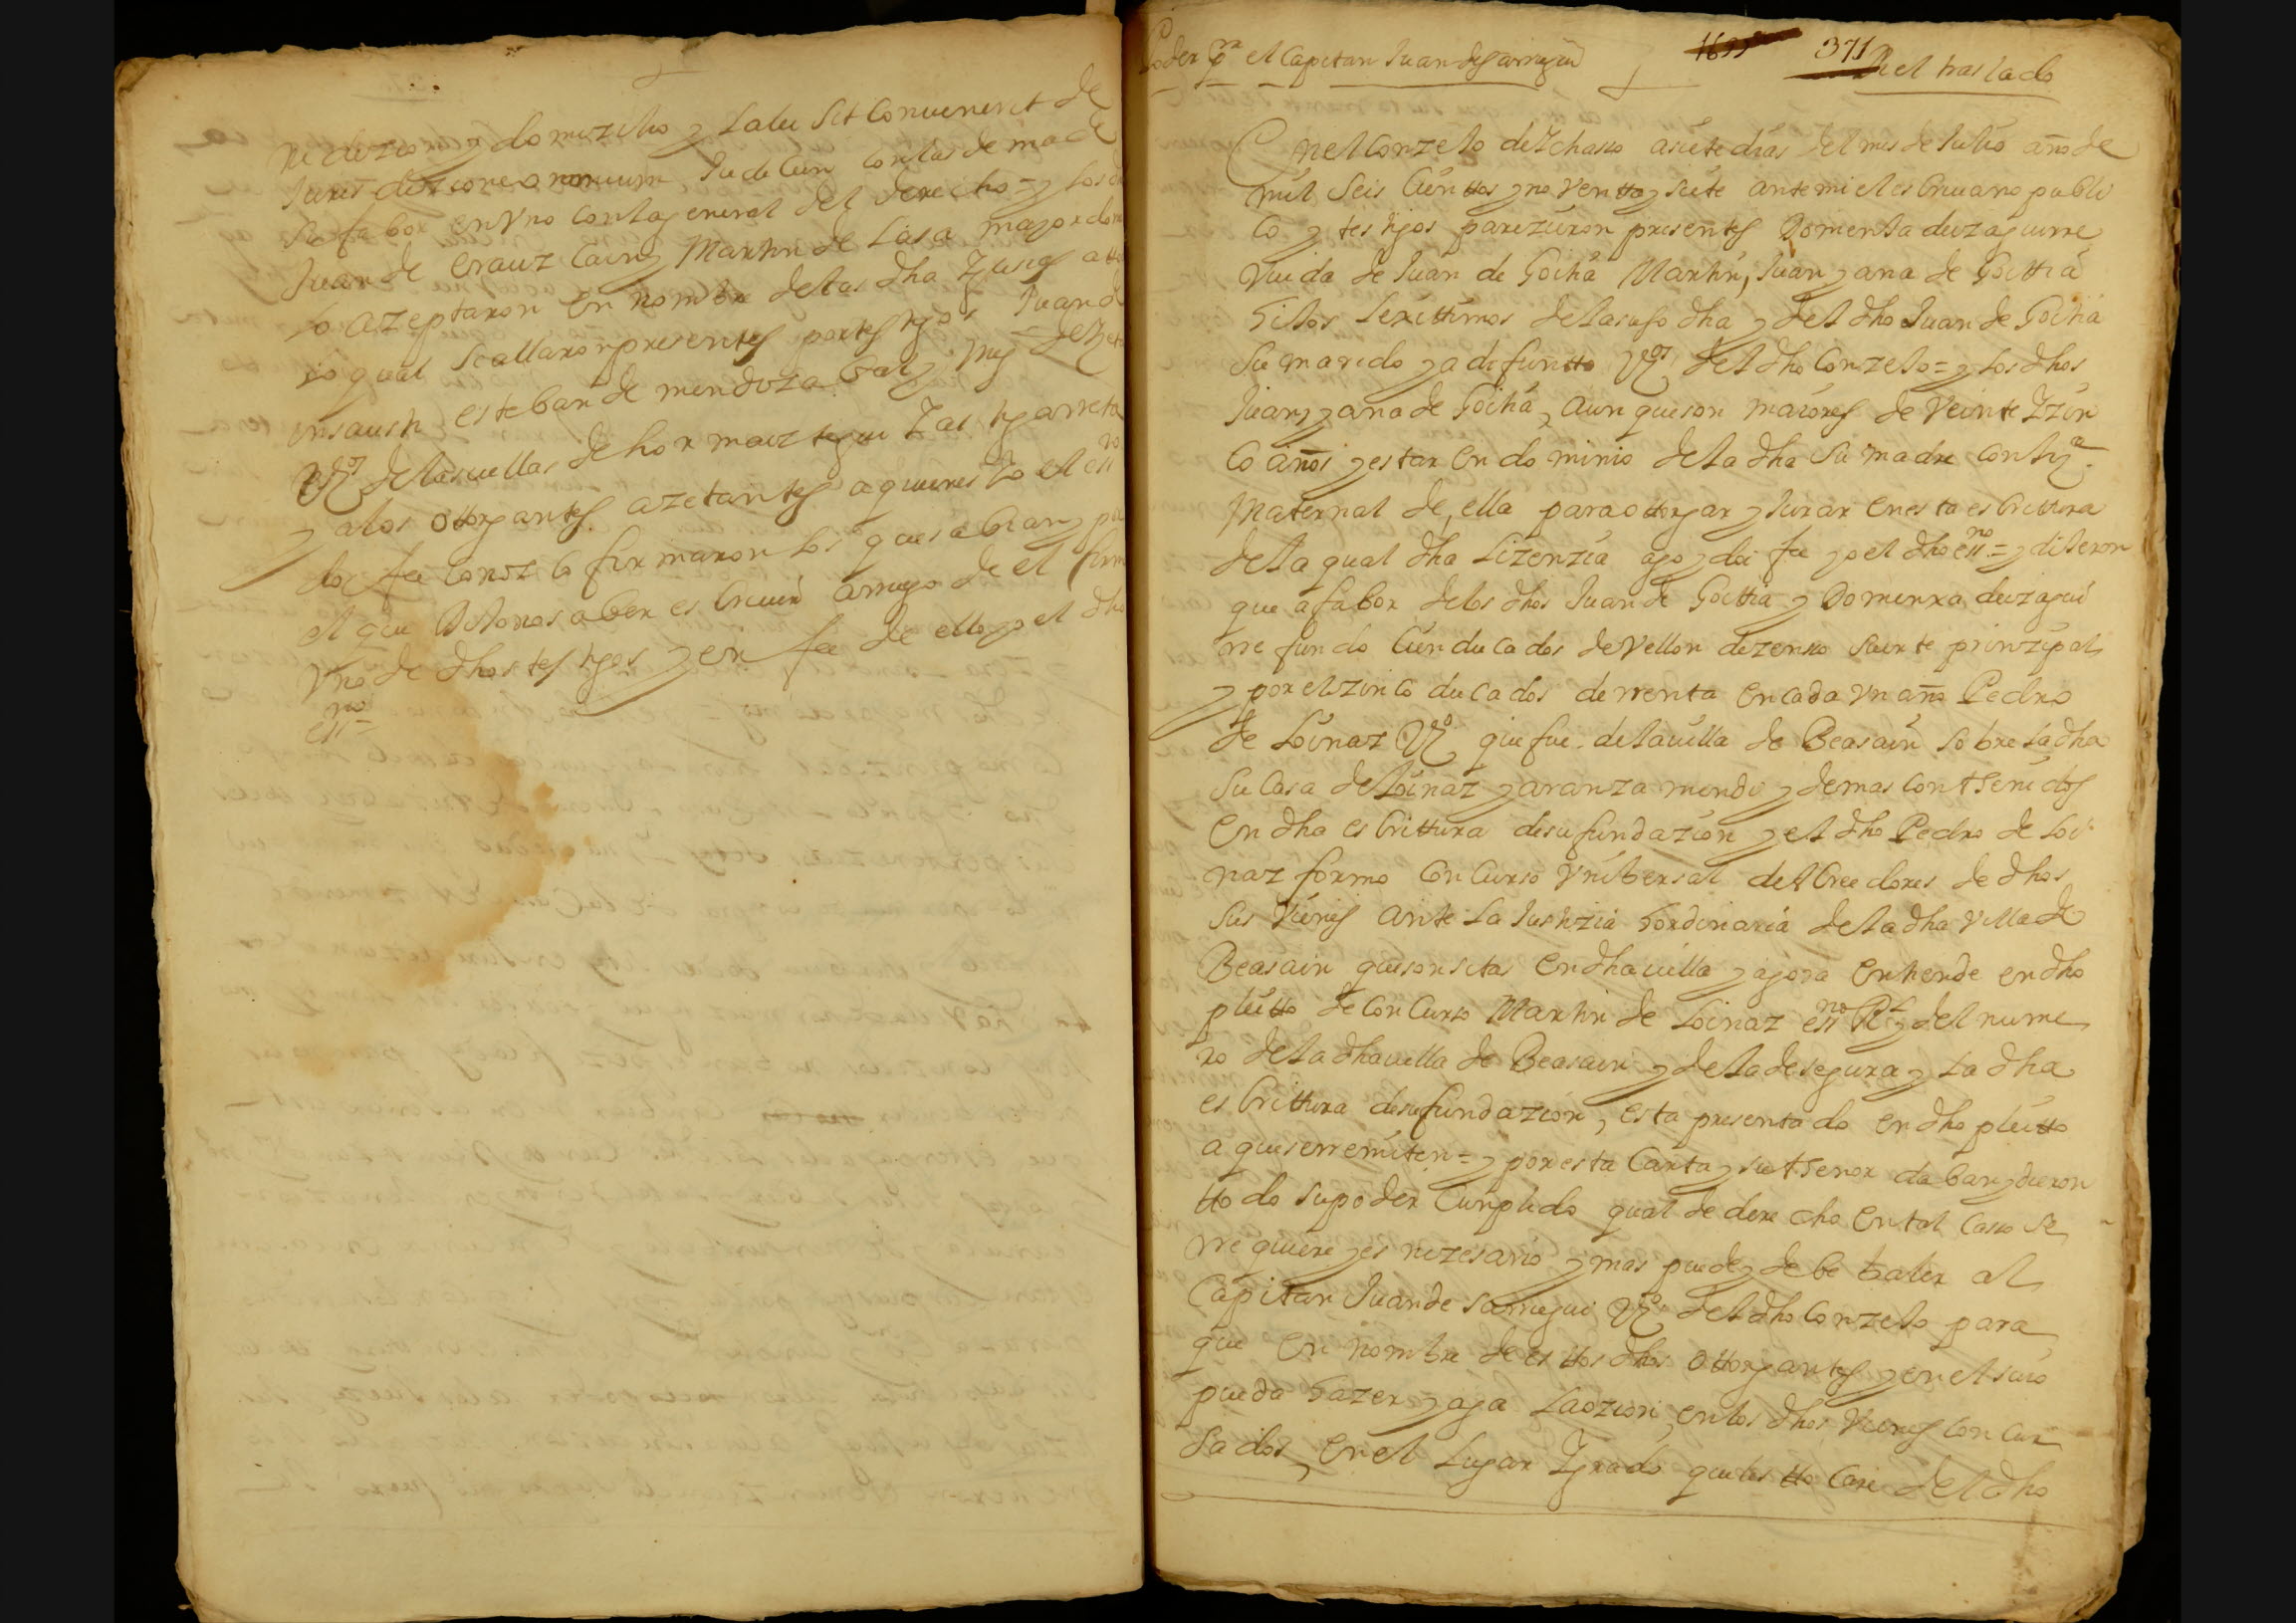 risdizion y domizilio y la lei sit conuenerit de
Juris dizione onnium Judicun con las demas de
su fabor en vno con la general del derecho = y los dhos
Juan de Erauzcain y Martin de Lasa mayordomo
lo azeptaron en nombre de las dha
lo qual se allaron presentes por testigos Juan de
insausti esteban de mendizabal y
vºs de las villas de hormaiztegui Zaj tigarreta
y a los ottorgantes azetantes a quienes yo el essno
doi fee conozco firmaron los que sabian y por
el que dijo no saber escriuir a ruego de el firmo
vno de dhos testigos y en fee de ello yo el dho
essno =
Poder pª el Capitan Juan de Sarregui
1695 371
Di el traslado
En el Conzejo de Ychaso a siete dias del mes de Julio año de
mil seis cienttos y noventta y siete ante mi el escriuano publi
co y testigos parezieron presentes Domenja de yzaguirre
viuda de Juan de Goitia Martin, Juan y ana de Goittia
hijos lexittimos de la suso dha y del dho Juan de Goitia
su marido ya difuntto vºs del dho Conzejo = y los dhos
Juan y ana de Goitia, aunque son maiores de veinte Zzin
co años y estar en dominio de la dha su madre con lizª
maternal de ella para ottorgar y Jurar en esta escrittura
de la qual dha Lizenzia ago y doi fee yo el dho essno = y dijeron
que a fabor de los dhos Juan de Goittia y Domenxa de yzagui
rre fundo cien ducados de vellon de zenso suerte prinzipal
y por el zinco ducados de rrenta en cada vn año Pedro
de Loinaz vº que fue de la villa de Beasain sobre la dha
su Casa de Loinaz y aranzamendi y demas conttenidos
en dha escrittura de su fundazion y el dho Pedro de Loi
naz formo Concurso vnibersal de acreedores de dhos
sus vienes ante la Justizia hordinaria de la dha villa de
Beasain que son sitas en dha villa y agora entiende en dho
pleitto de Concurso Martin de Loinaz essno Rl y del nume
ro de la dha villa de Beasain y de la de segura y la dha
escrittura de su fundazion, esta presentado en dho pleitto
a que se rremiten = y por esta Carta y su ttenor daban y dieron
ttodo su poder Cunplido qual de derecho en tal caso se
rrequiere y es nezesario y mas puede y debe baler al
Capitan Juan de sarregui vº del dho Conzejo para
que en nombre de esttos dhos ottorgantes y en el suio
pueda hazer y aga Laozion, en los dhos vienes concur
sados, en el Lugar Zgrado que les ttocare del dho